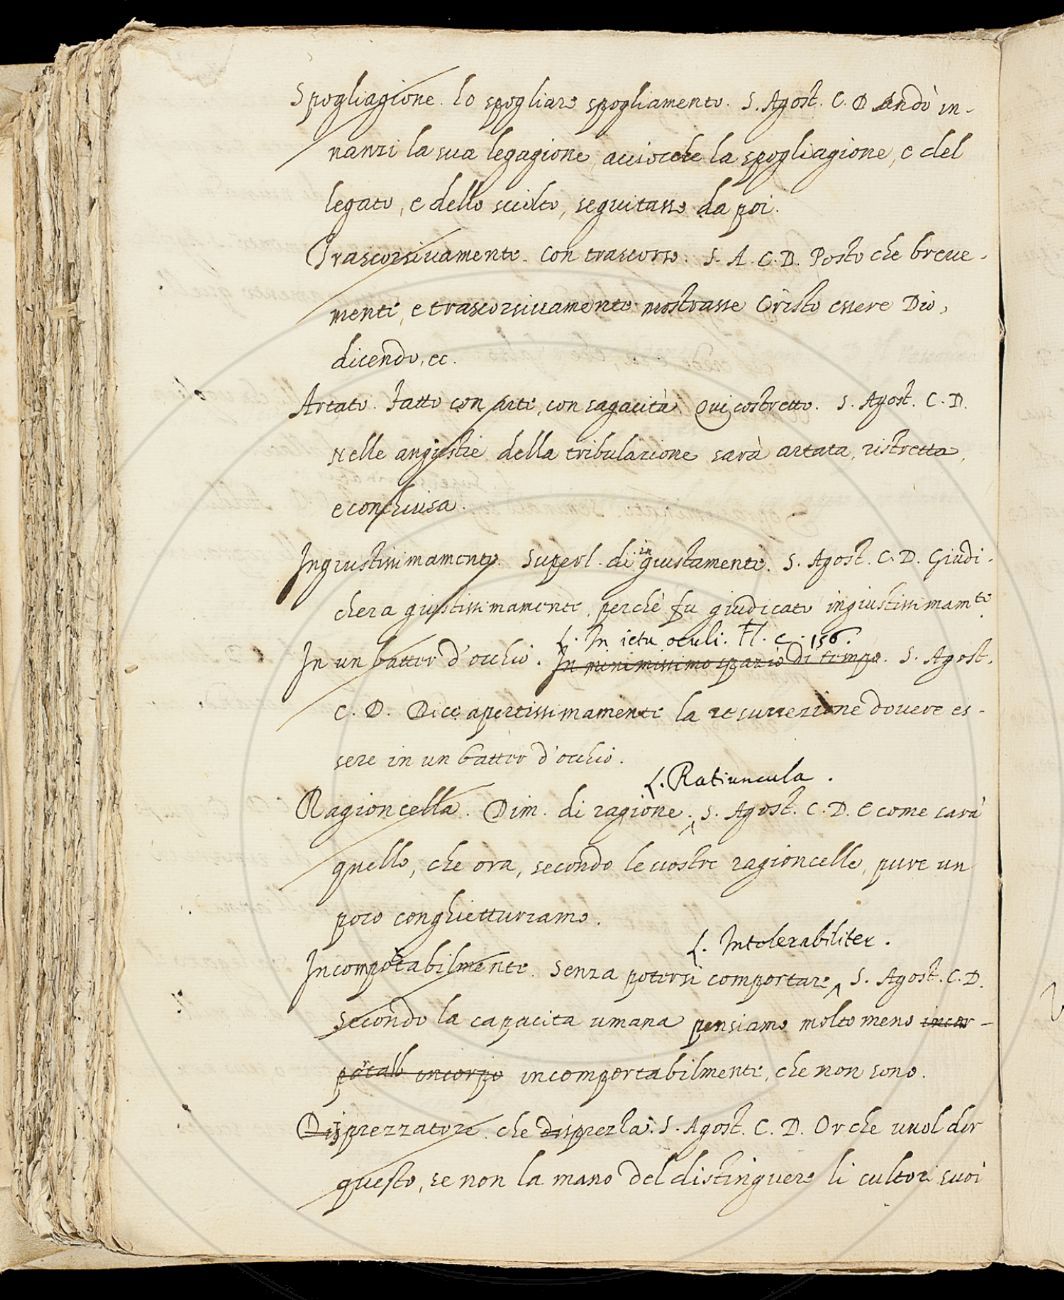 Spogliagione. lo spogliare spogliamento. S. Agost. C. D. Andò in-
nanzi la sua legagione, acciocche la spogliagione, e del
legato, e dello sciolto, seguitasse da poi.
Trascorsivamente. con trascorso. S. A. C. D. Posto che breve-
mente, e trascorsivamente mostrasse Cristo essere Dio,
dicendo, ec.
Artato. Fatto con arte, con sagacità Qui costretto. S. Agost. C. D.
Nelle angustie della tribulazione sarà artata, ristretta,
e conchiusa.
Ingiustissimamente. Superl. di ingiustamente. S. Agost. C. D. Giudi-
chera giustissimamente, perchè fu giudicato ingiustissimamte.
L. In ictu oculi. Fl. c. 156.
In un batter d'occhio. In menimissimo spazio di tempo. S. Agost.
C. D. Dice apertissimamente la resurrezione dovere es-
sere in un batter d'occhio.
L. Ratiuncula.
Ragioncella. Dim. di ragione. S. Agost. C. D. E come sarà
quello, che ora, secondo le vostre ragioncelle, pure un
poco conghietturiamo.
L. Intolerabiliter.
Incomportabilmente. Senza potersi comportare S. Agost. C. D.
Secondo la capacita umana pensiamo molto meno incor-
incorpo incomportabilmente, che non sono.
Disprezzatore. che disprezza. S. Agost. C. D. Or che vuol dir
questo, se non la mano del distinguere li cultori suoi